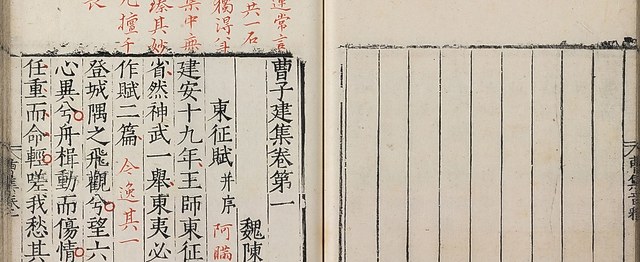 運常言
共一石
獨得
集中無
臻其妙
擅千
曹子建集卷第一
魏陳
東征賦 并序 阿瞞
建安十九年王師東征
省然神武一舉東夷必
作賦二篇 今逸其一
登城隅之飛觀兮望六
心異兮舟楫動而傷情
任重而命輕嗟我愁其